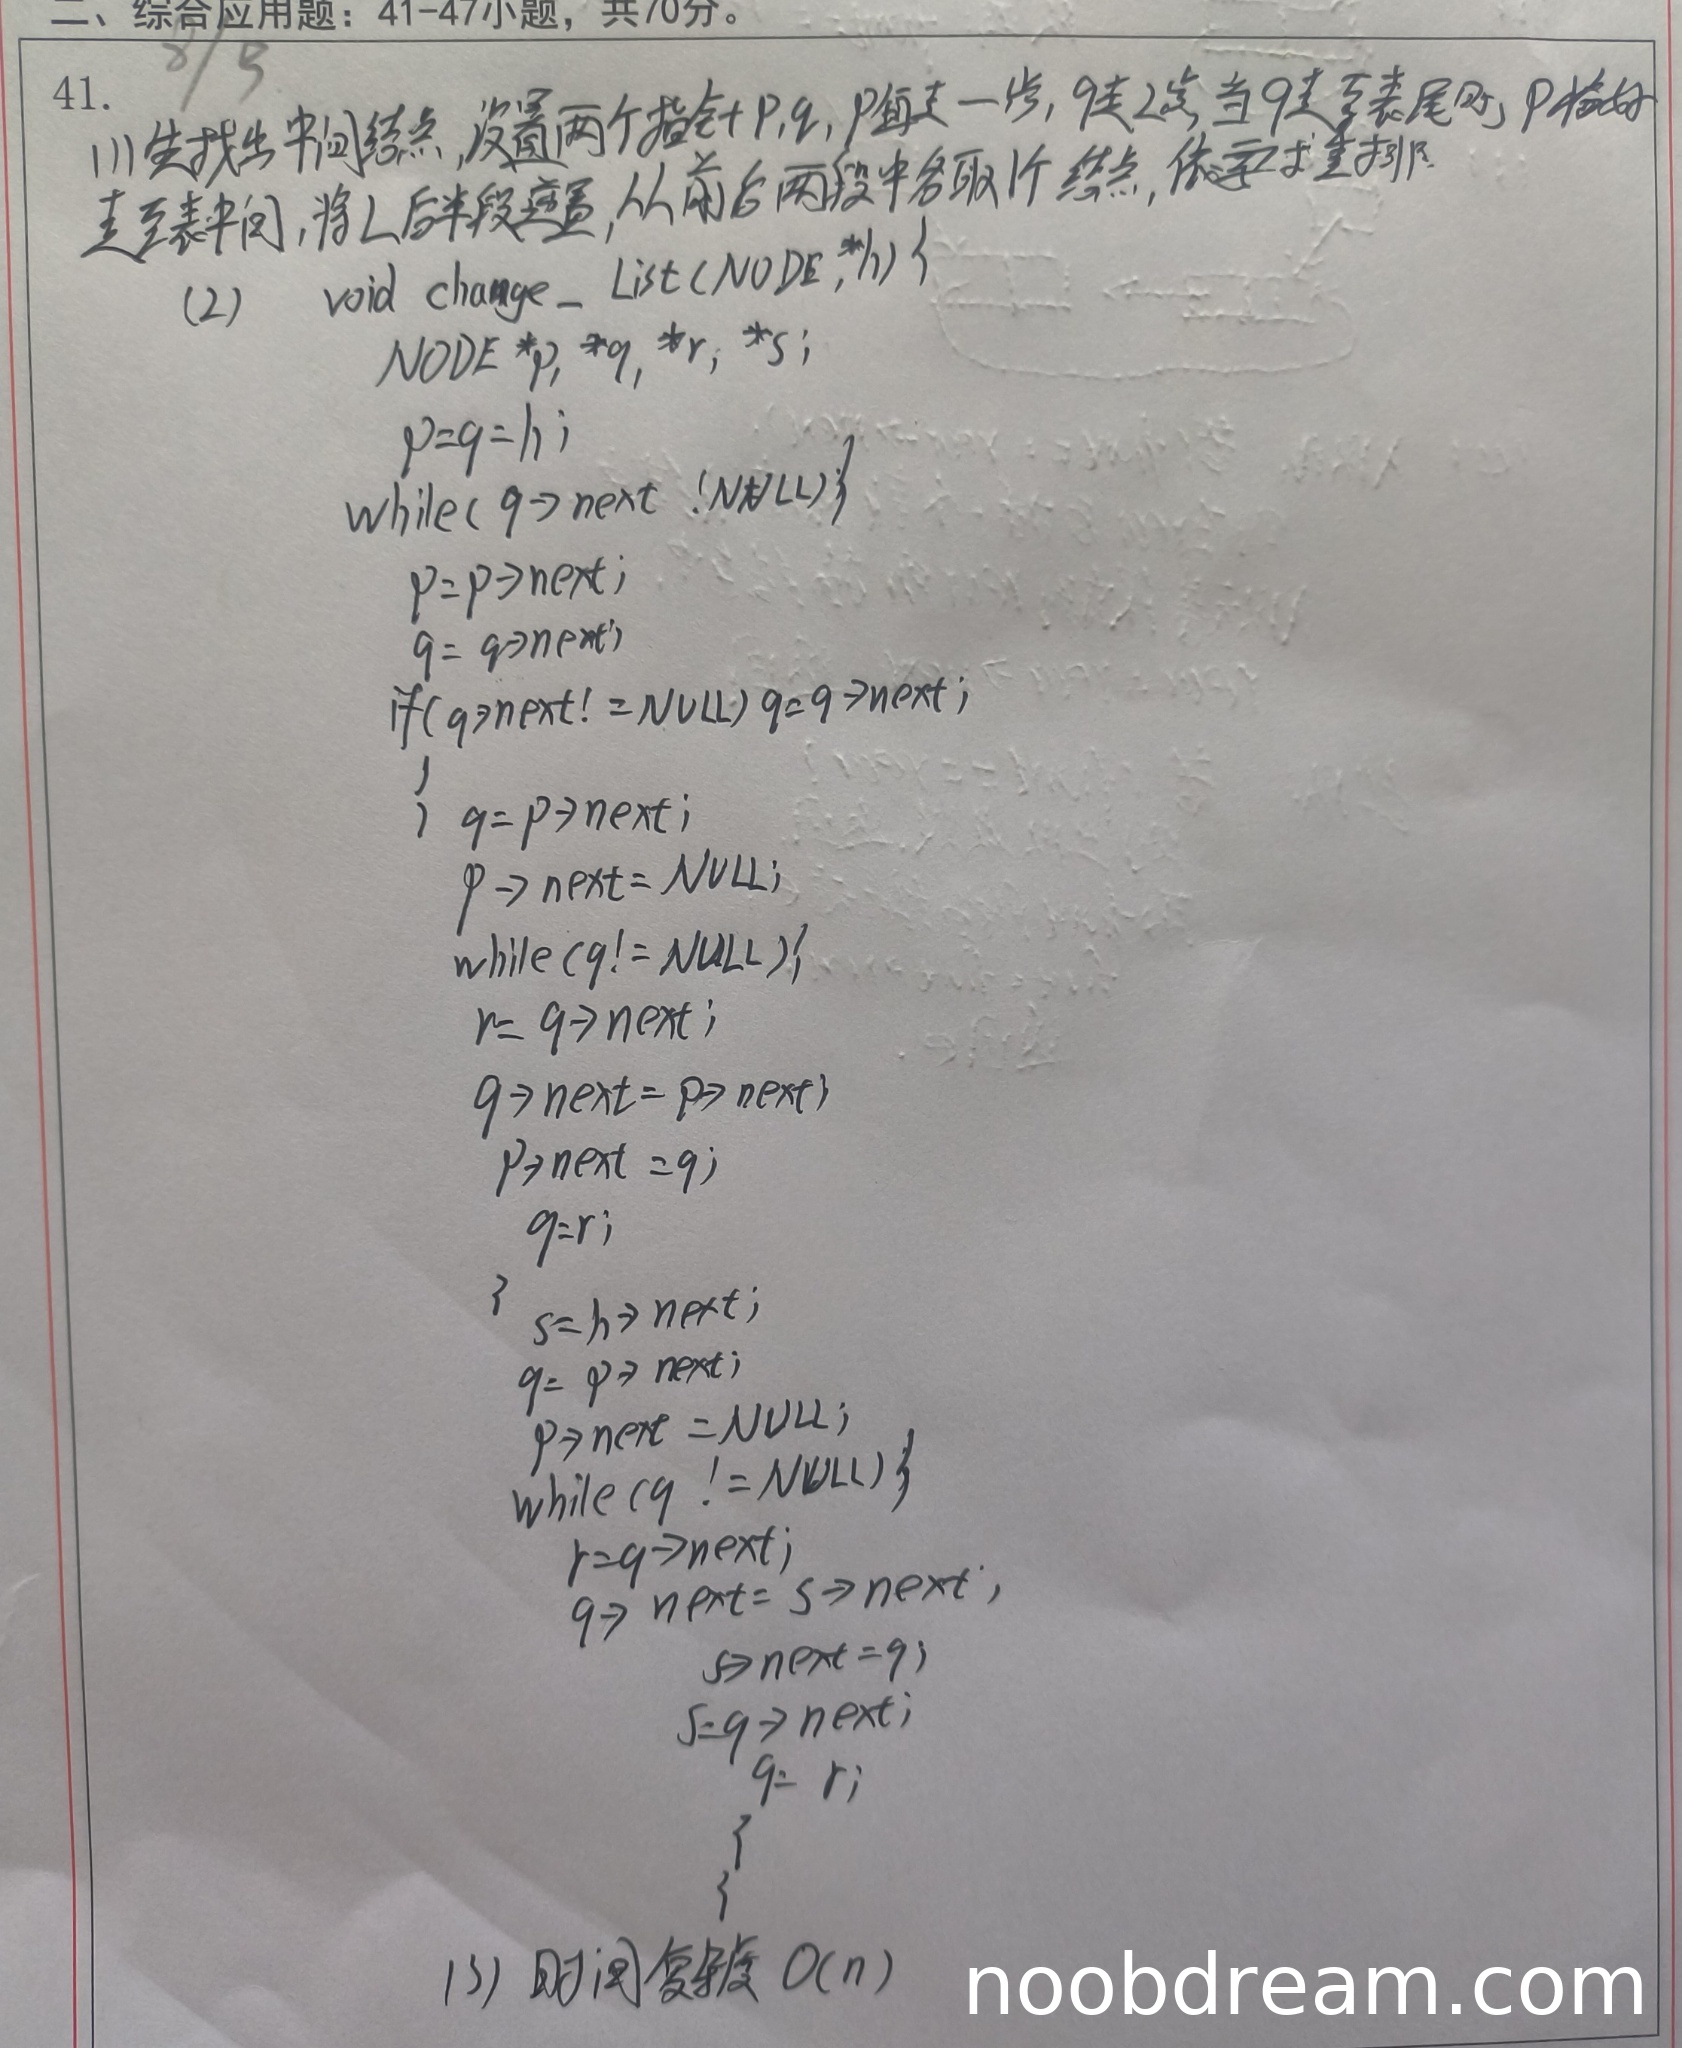 二、综合应用题：41-47小题，共70分。
8/13
41.
(1)先找出中间结点,设置两个指针p,q,p每走一步,q走2步,当q走至表尾时,p恰好
走至表中间,将L后半段逆置,从前后两段中各取1个结点,依次重排
(2) void change_List(NODE *h){
NODE *p, *q, *r, *s;
p=q=h;
while(q->next !NULL){
p=p->next;
q=q->next;
if(q->next!=NULL) q=q->next;
}
} q=p->next;
p->next=NULL;
while(q!=NULL){
r=q->next;
q->next=p->next;
p->next=q;
q=r;
} s=h->next;
q=p->next;
p->next=NULL;
while(q !=NULL){
r=q->next;
q->next=s->next;
s->next=q;
s=q->next;
q=r;
}
}
(3)时间复杂度 O(n)
noobdream.com